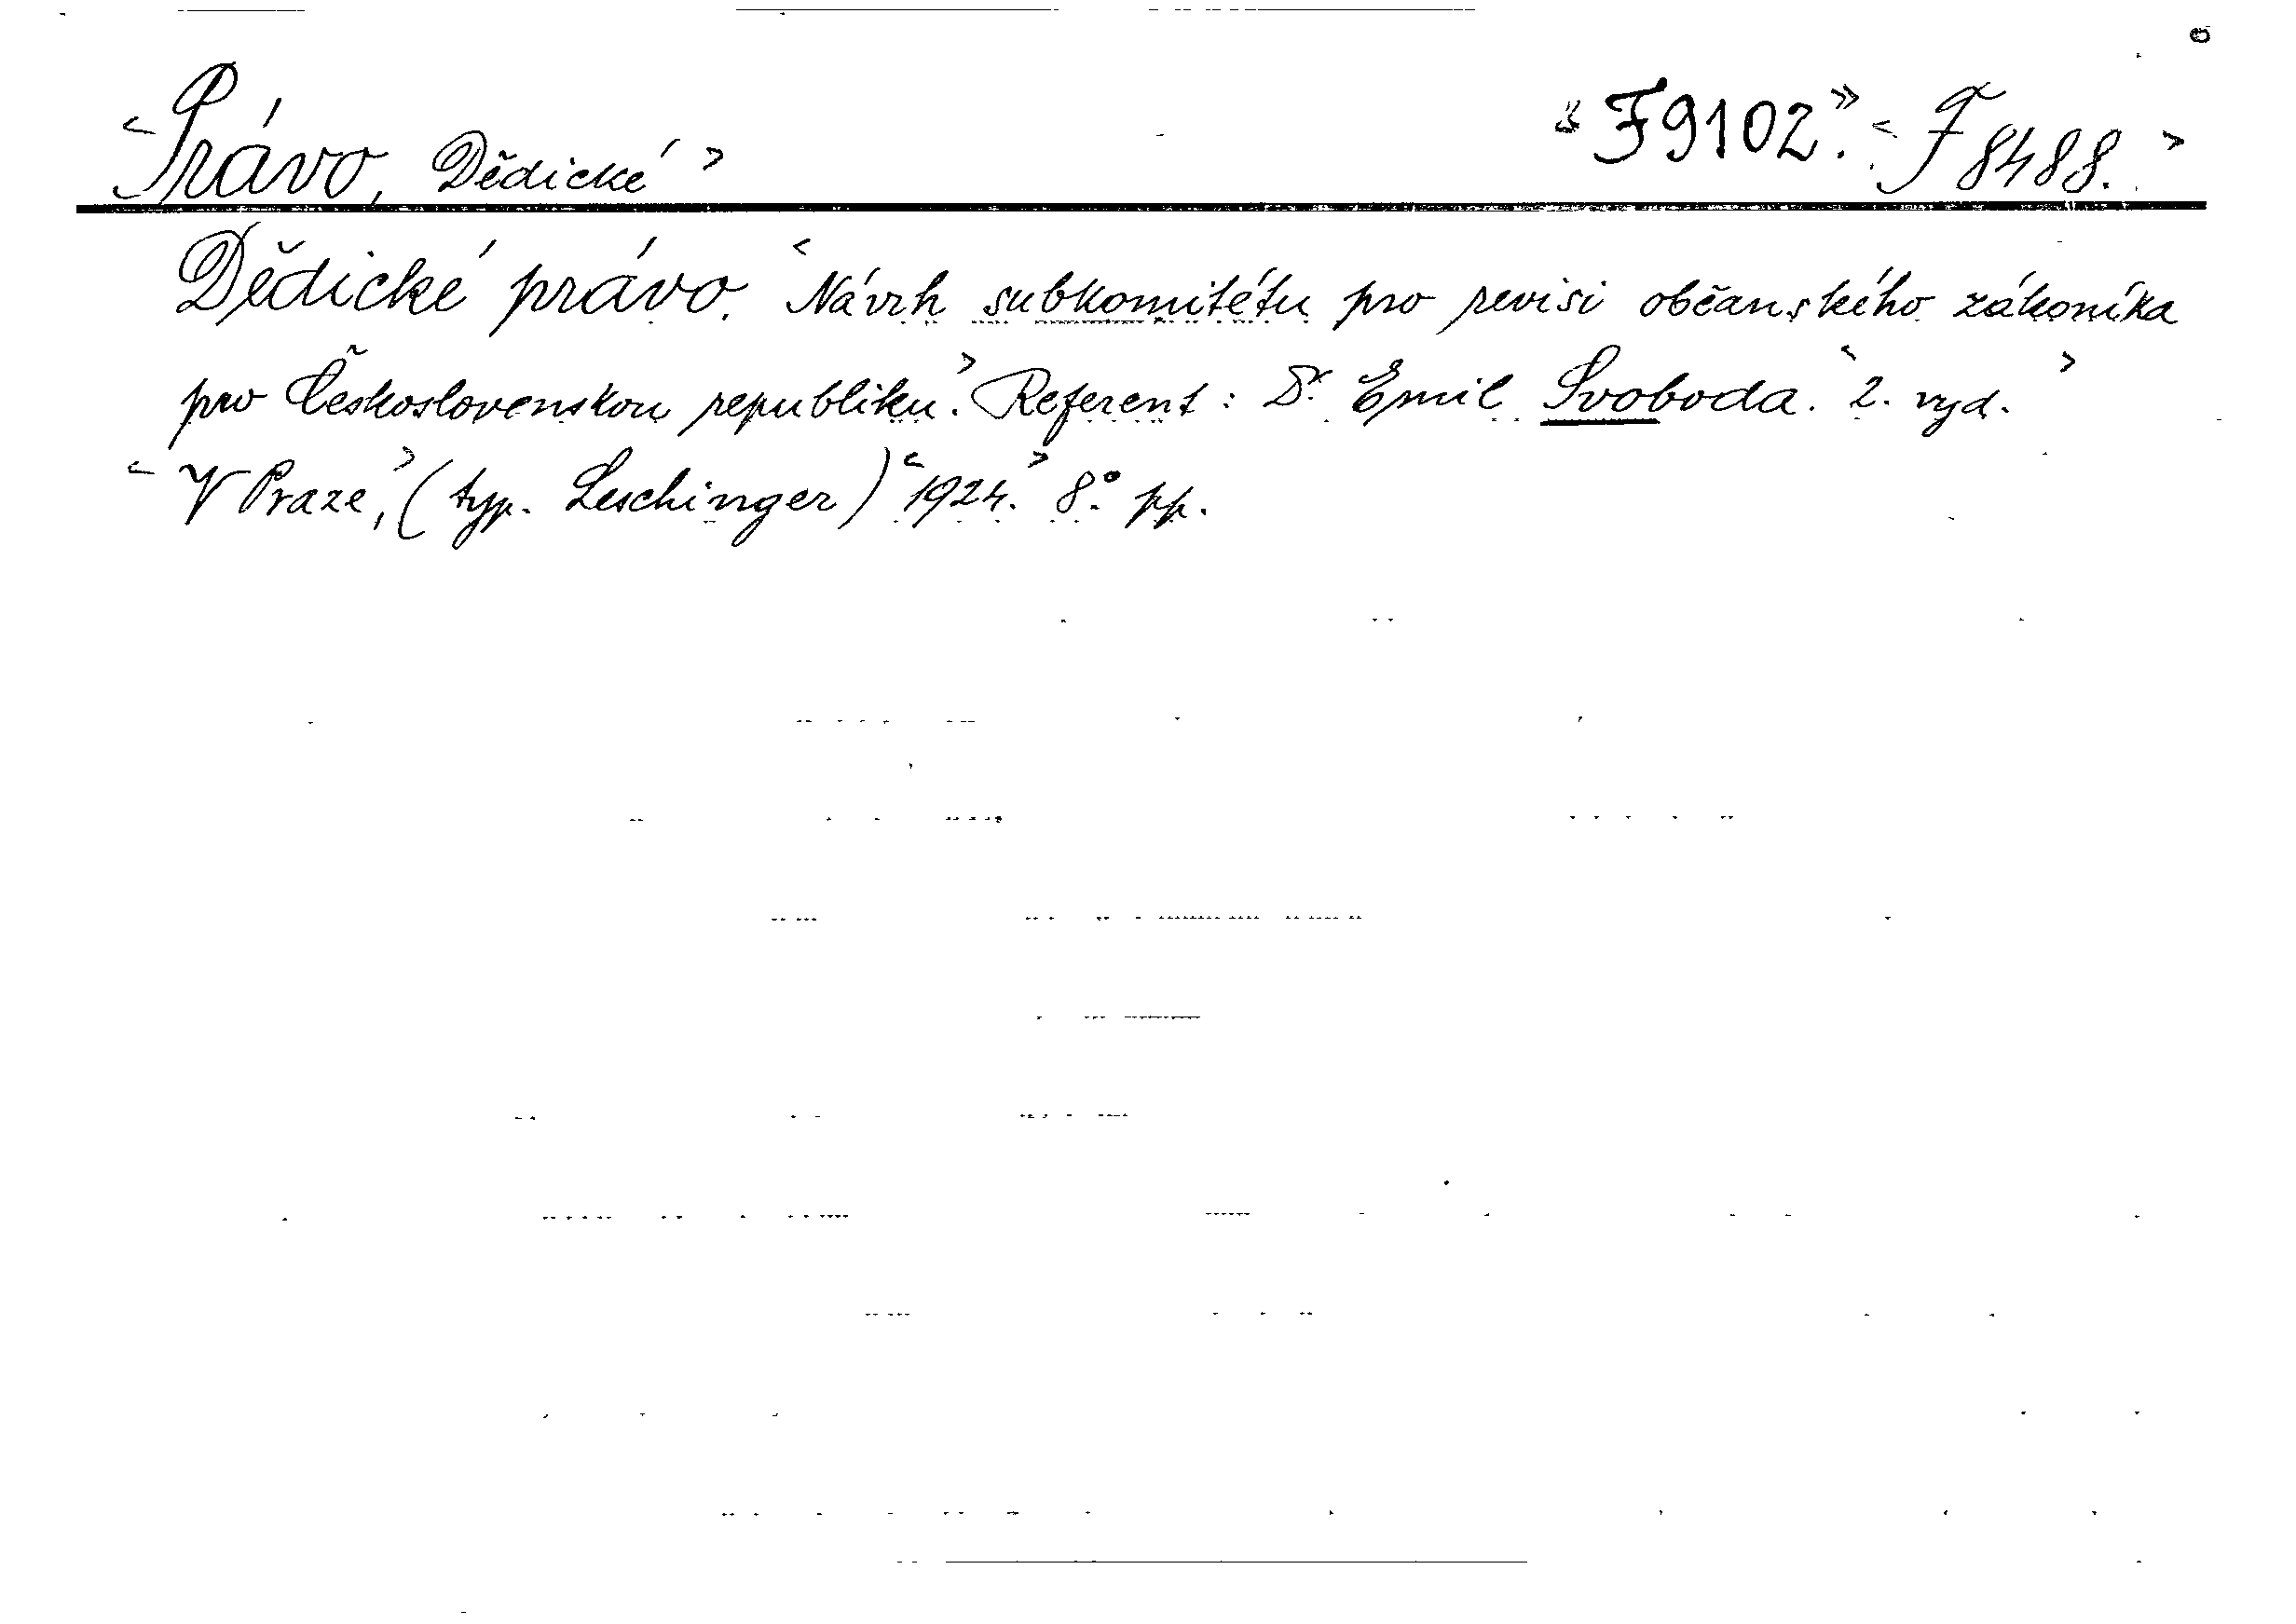 <Právo, Dědické> «F9102.» <F 8488.>
Dědické právo. <Návrh subkomitétu pro revisi občanského zákoníka
pro Československou republiku.> Referent: Dr Emil Svoboda. <2. vyd.>
<V Praze,> (typ. Leschinger) <1924.> 8° pp.